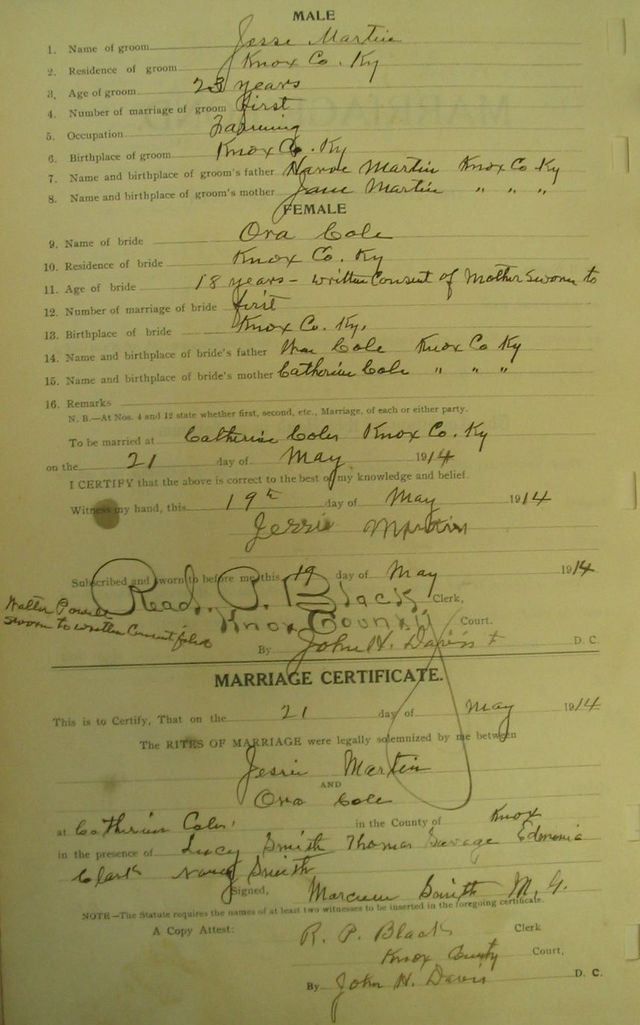 MALE
1. Name of groom Jesse Martin
2. Residence of groom Knox Co. Ky
3. Age of groom 23 years
4. Number of marriage of groom first
5. Occupation Farming
6. Birthplace of groom Knox Co. Ky
7. Name and birthplace of groom's father Martin Knox Co Ky
8. Name and birthplace of groom's mother Jane Martin " " "
FEMALE
9. Name of bride Ora Cole
10. Residence of bride Knox Co. Ky
11. Age of bride 18 years - written Consent of Mother Sworn to
12. Number of marriage of bride first
13. Birthplace of bride Knox Co. Ky.
14. Name and birthplace of bride's father Wm Cole Knox Co Ky
15. Name and birthplace of bride's mother Catherine Cole " " "
16. Remarks
N. B.—At Nos. 4 and 12 state whether first, second, etc., Marriage, of each or either party.
To be married at Catherine Coles Knox Co. Ky
on the 21 day of May 1914
I CERTIFY that the above is correct to the best of my knowledge and belief.
Witness my hand, this 19th day of May 1914
Jessie Martin
Subscribed and sworn to before me this 19 day of May 1914
Read P. Black Clerk,
Walter
sworn to written Consent filed
Knox County Court.
By John H. Davis D. C.
MARRIAGE CERTIFICATE.
This is to Certify, That on the 21 day of May 1914
The RITES OF MARRIAGE were legally solemnized by me between
Jessie Martin
AND
Ora Cole
at Catherine Coles, in the County of Knox
in the presence of Lucy Smith Thomas Savage Edmonia
Clark Nancy Smith
Signed, Smith M. G.
NOTE—The Statute requires the names of at least two witnesses to be inserted in the foregoing certificate.
A Copy Attest: R. P. Black Clerk
Knox County Court,
By John H. Davis D. C.